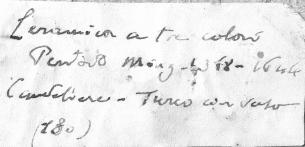 Ceramica a tre colori
Periodo Ming - 1368 - 1644
Candeliere - Turco con vaso
(180)